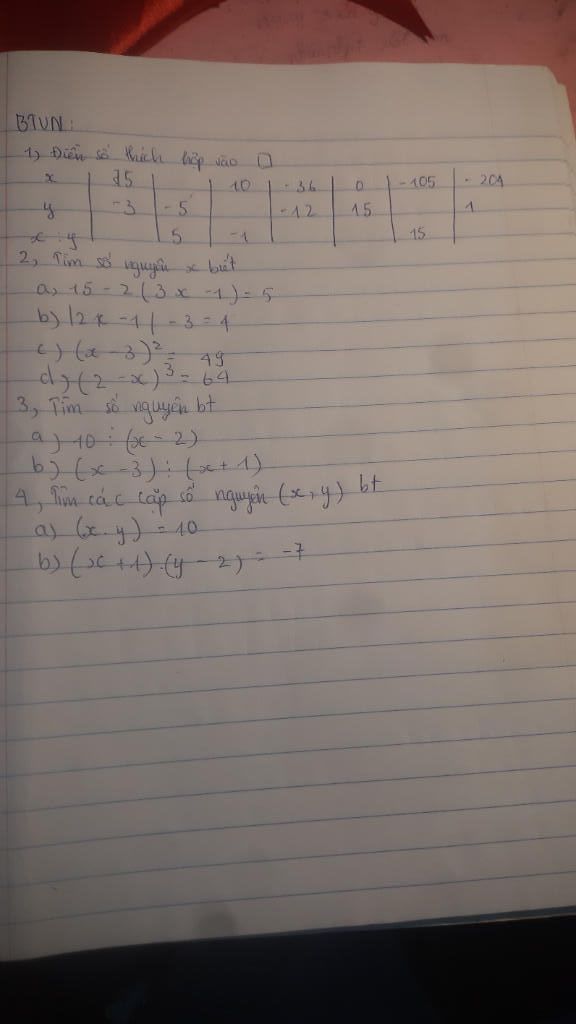 BTVN:
1, Điền số thích hợp vào □
x | 15 | | 10 | -36 | 0 | -105 | -201
y | -3 | -5 | | -12 | 15 | | 1
x : y | | 5 | -1 | | | 15 |
2, Tìm số nguyên x biết
a, 15 - 2(3x - 1) = 5
b) |2x - 1| - 3 = 4
c) (x - 3)² = 49
d, (2 - x)³ = 64
3, Tìm số nguyên bt
a) 10 ⋮ (x - 2)
b) (x - 3) ⋮ (x + 1)
4, Tìm các cặp số nguyên (x, y) bt
a) (x . y) = 10
b) (x + 1) . (y - 2) = -7